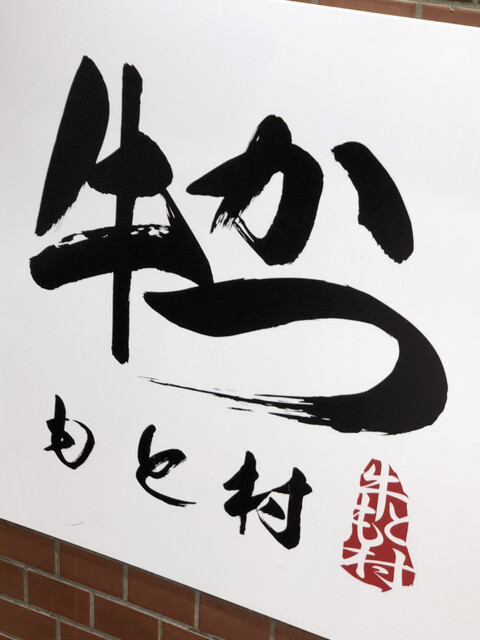 牛かつ
もと村
牛と
もと村